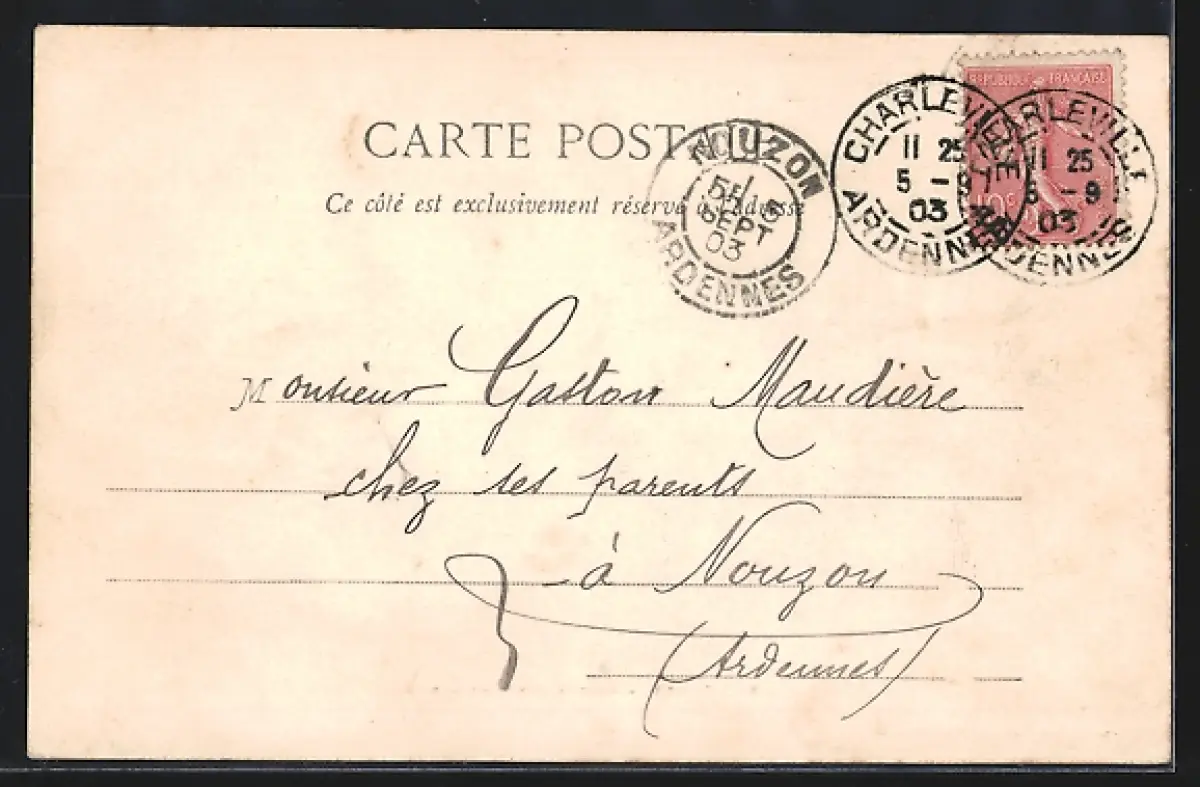 REPUBLIQUE FRANÇAISE
CHARLEVILLE
11 25
5 - 9
03
ARDENNES
CHARLEVILLE
11 25
5 - 9
03
ARDENNES
10c
CARTE POSTALE
Ce côté est exclusivement réservé à l'adresse
NOUZON
SEPT
03
ARDENNES
Monsieur Gaston Maudière
chez ses parents
à Nouzon
(Ardennes)